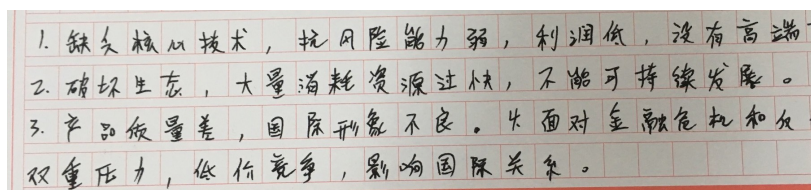 1. 缺乏核心技术，抗风险能力弱，利润低，没有高端
2. 破坏生态，大量消耗资源过快，不能可持续发展。
3. 产品质量差，国际形象不良。4 面对金融危机和反
双重压力，低价竞争，影响国际关系。